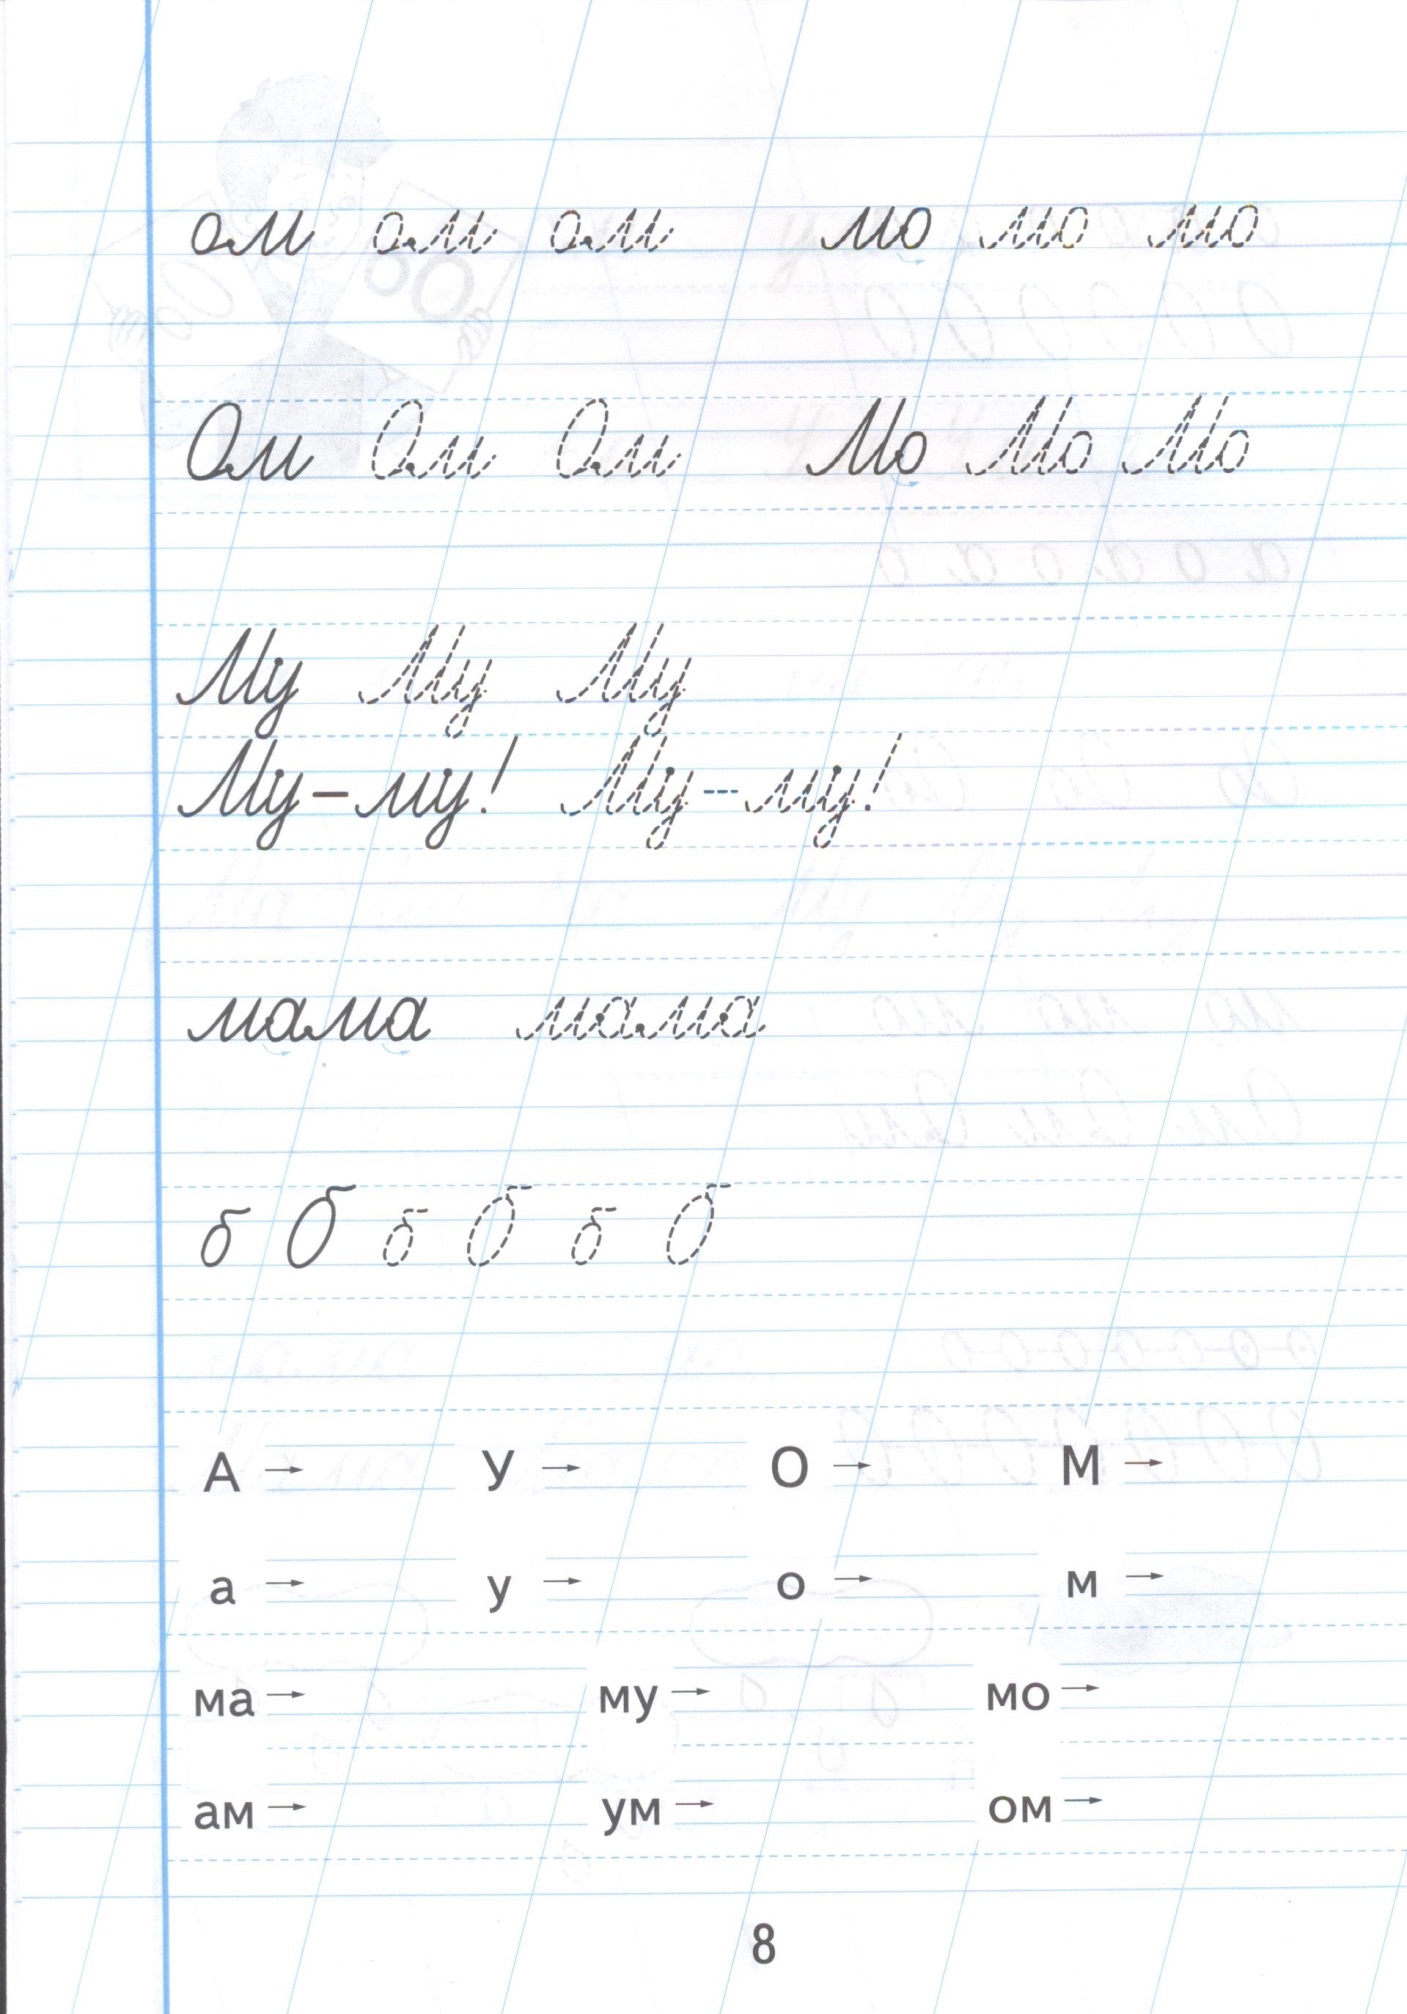 ом ом ом мо мо мо
Ом Ом Ом Мо Мо Мо
Му Му Му
Му-му! Му-му!
мама мама
б Б б Б б Б
А → У → О → М →
а → у → о → м →
ма → му → мо →
ам → ум → ом →
8